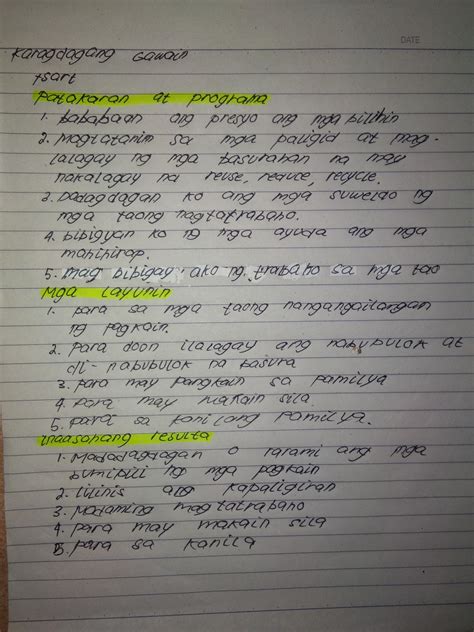 DATE
Karagdagang Gawain
tsart
Patakaran at programa
1. bababaan ang presyo ang mga bilihin
2. magtatanim sa mga paligid at mag-
lalagay ng mga basurahan na may
nakalagay na reuse, reduce, recycle.
3. Dadagdagan ko ang mga suweldo ng
mga taong nagtatrabaho.
4. bibigyan ko ng mga ayuda ang mga
mahihirap.
5. mag bibigay ako ng trabaho sa mga tao
Mga Layunin
1. para sa mga taong nangangailangan
ng pagkain.
2. para doon ilalagay ang nabubulok at
di-nabubulok na basura
3. para may pangkain sa pamilya
4. para may makain sila.
5. para sa kanilang pamilya.
inaasahang resulta
1. Madadagdagan o larami ang mga
bumibili ng mga pagkain
2. lilinis ang kapaligiran
3. Madaming magtatrabaho
4. para may makain sila
5. para sa kanila